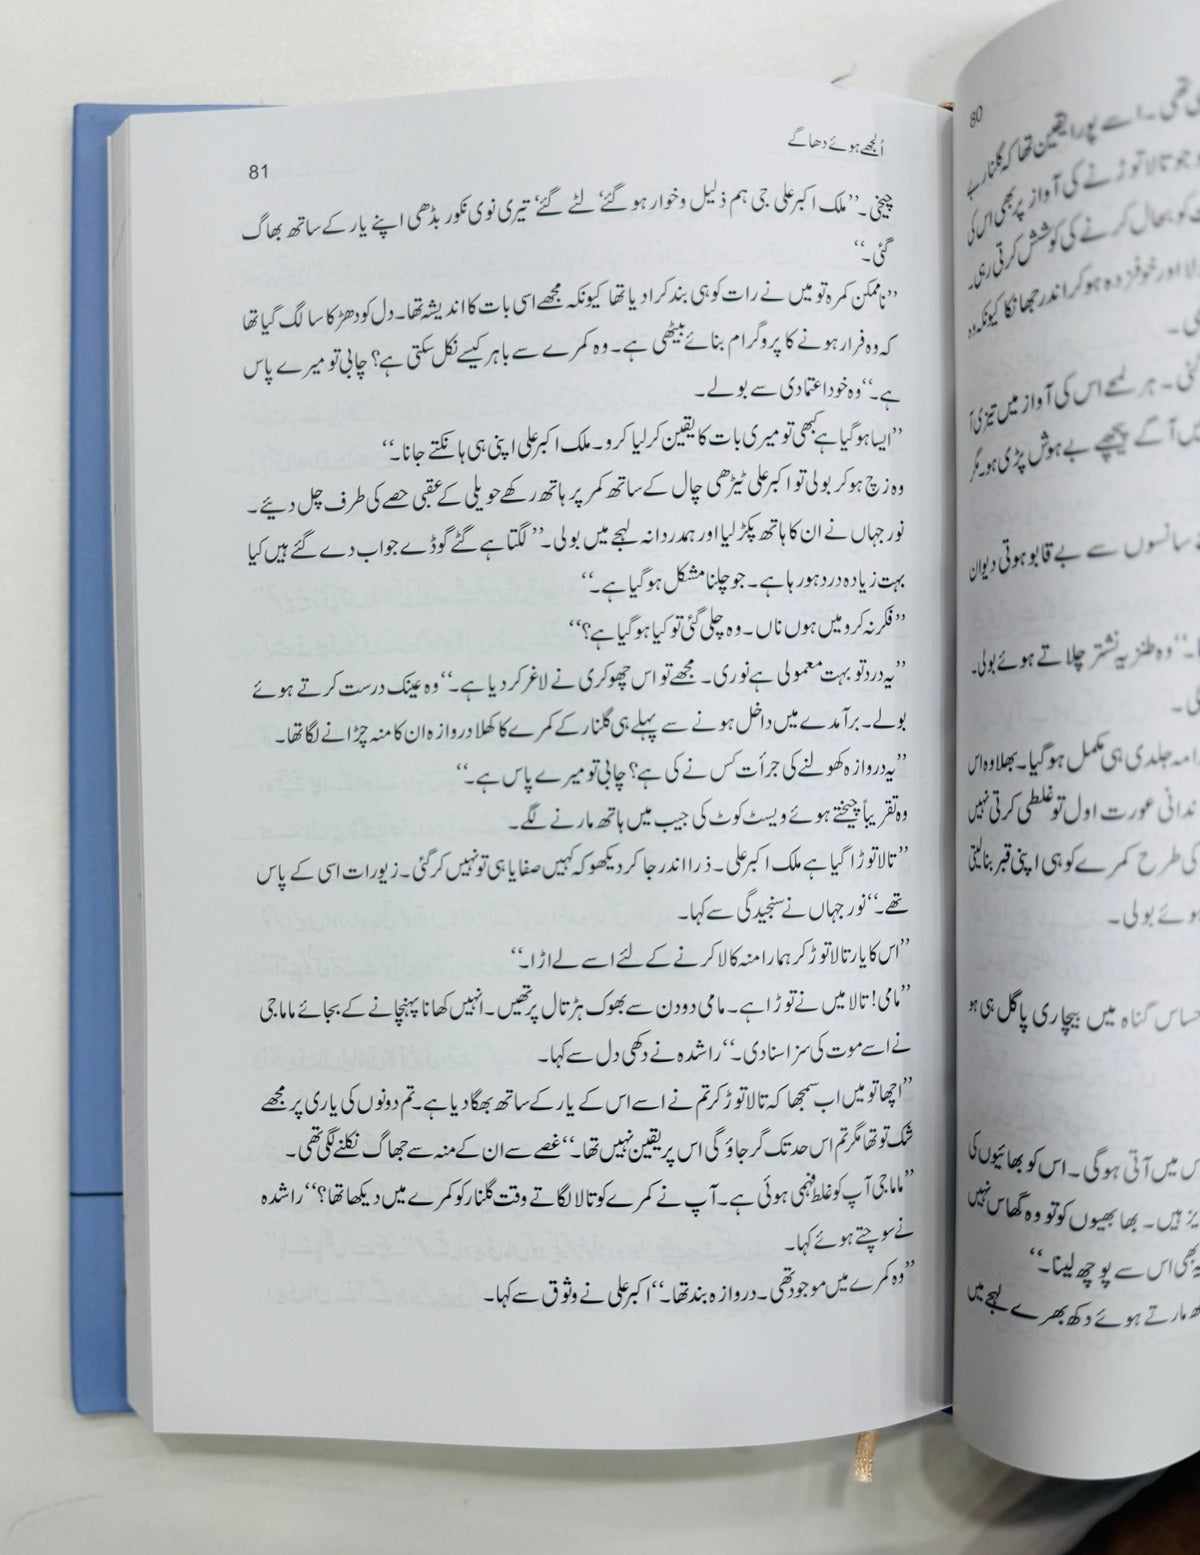 اُلجھے ہوئے دھاگے
81
چیخی۔ ’’ملک اکبر علی جی ہم ذلیل و خوار ہو گئے‘ لٹے گئے‘ تیری نوی نکور بڈھی اپنے یار کے ساتھ بھاگ
گئی۔‘‘
’’ناممکن کمرہ تو میں نے رات کو ہی بند کرا دیا تھا کیونکہ مجھے اسی بات کا اندیشہ تھا۔ دل کو دھڑکا سا لگ گیا تھا
کہ وہ فرار ہونے کا پروگرام بنائے بیٹھی ہے۔ وہ کمرے سے باہر کیسے نکل سکتی ہے؟ چابی تو میرے پاس
ہے۔‘‘ وہ خود اعتمادی سے بولے۔
’’ایسا ہو گیا ہے کبھی تو میری بات کا یقین کر لیا کرو۔ ملک اکبر علی اپنی ہی ہانکتے جانا۔‘‘
وہ زچ ہو کر بولی تو اکبر علی ٹیڑھی چال کے ساتھ کمر پر ہاتھ رکھے حویلی کے عقبی حصے کی طرف چل دیئے۔
نور جہاں نے ان کا ہاتھ پکڑ لیا اور ہمدردانہ لہجے میں بولی۔ ’’لگتا ہے گٹے گوڈے جواب دے گئے ہیں کیا
بہت زیادہ درد ہو رہا ہے۔ جو چلنا مشکل ہو گیا ہے۔‘‘
’’فکر نہ کرو میں ہوں ناں۔ وہ چلی گئی تو کیا ہو گیا ہے؟‘‘
’’یہ درد تو بہت معمولی ہے نوری۔ مجھے تو اس چھوکری نے لاغر کر دیا ہے۔‘‘ وہ عینک درست کرتے ہوئے
بولے۔ برآمدے میں داخل ہونے سے پہلے ہی گلنار کے کمرے کا کھلا دروازہ ان کا منہ چڑانے لگا تھا۔
’’یہ دروازہ کھولنے کی جرأت کس نے کی ہے؟ چابی تو میرے پاس ہے۔‘‘
وہ تقریباً چیختے ہوئے ویسٹ کوٹ کی جیب میں ہاتھ مارنے لگے۔
’’تالا توڑا گیا ہے ملک اکبر علی۔ ذرا اندر جا کر دیکھو کہ کہیں صفایا ہی تو نہیں کر گئی۔ زیورات اسی کے پاس
تھے۔‘‘ نور جہاں نے سنجیدگی سے کہا۔
’’اس کا یار تالا توڑ کر ہمارا منہ کالا کرنے کے لئے اسے لے اڑا۔‘‘
’’مامی! تالا میں نے توڑا ہے۔ مامی دو دن سے بھوک ہڑتال پر تھیں۔ انہیں کھانا پہنچانے کے بجائے ماما جی
نے اسے موت کی سزا سنا دی۔‘‘ راشدہ نے دکھی دل سے کہا۔
’’اچھا تو میں اب سمجھا کہ تالا توڑ کر تم نے اسے اس کے یار کے ساتھ بھگا دیا ہے۔ تم دونوں کی یاری پر مجھے
شک تو تھا مگر تم اس حد تک گر جاؤ گی اس پر یقین نہیں تھا۔‘‘ غصے سے ان کے منہ سے جھاگ نکلنے لگی تھی۔
’’ماما جی آپ کو غلط فہمی ہوئی ہے۔ آپ نے کمرے کو تالا لگاتے وقت گلنار کو کمرے میں دیکھا تھا؟‘‘ راشدہ
نے سوچتے ہوئے کہا۔
’’وہ کمرے میں موجود تھی۔ دروازہ بند تھا۔‘‘ اکبر علی نے وثوق سے کہا۔
80
تھی۔ اسے پورا یقین تھا کہ گلنار ہے
جو تالا توڑنے کی آواز پر بھی اس کی
کو بحال کرنے کی کوشش کرتی رہی۔
لا اور خوفزدہ ہو کر اندر جھانکا کیونکہ وہ
گئی۔ ہر لمحے اس کی آواز میں تیزی آ
آگے پیچھے بے ہوش پڑی ہو۔ مگر
سانسوں سے بے قابو ہوتی دیوان
‘‘ وہ طنزیہ نشتر چلاتے ہوئے بولی۔
جلدی ہی مکمل ہو گیا۔ بھلا وہ اس
ندانی عورت اول تو غلطی کرتی نہیں
کی طرح کمرے کو ہی اپنی قبر بنا لیتی
ہوئے بولی۔
حساس گناہ میں بیچاری پاگل ہی ہو
میں آتی ہو گی۔ اس کو بھائیوں کی
ہیں۔ بھابھیوں کو تو وہ گھاس نہیں
بھی اس سے پوچھ لینا۔‘‘
مارتے ہوئے دکھ بھرے لہجے میں